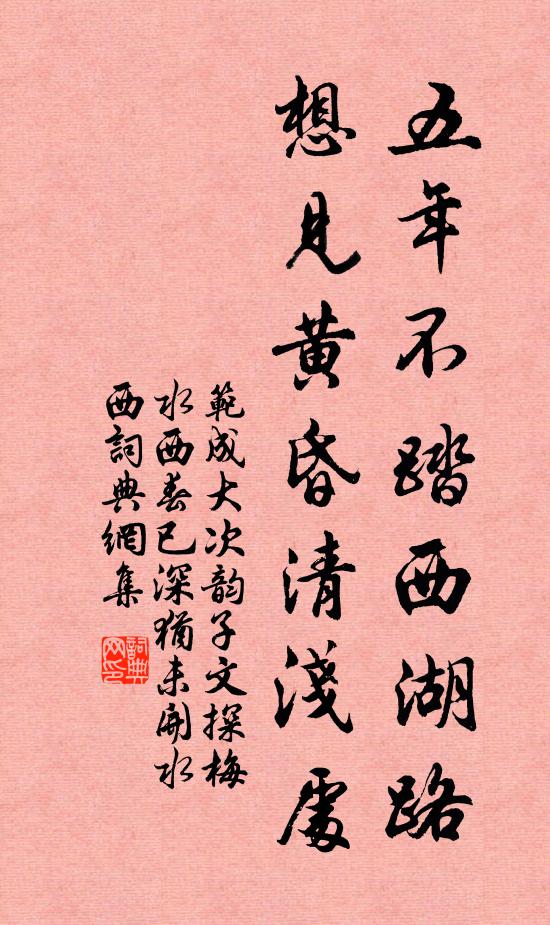 五年不踏西湖路
想見黃昏清淺處
範成大次韵子文探梅
水西春已深猶未開水
西詞典網集
詞典网印